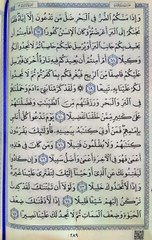 وَإِذَا مَسَّكُمُ ٱلضُّرُّ فِي ٱلْبَحْرِ ضَلَّ مَن تَدْعُونَ إِلَّآ إِيَّاهُ فَلَمَّا
نَجَّىٰكُمْ إِلَى ٱلْبَرِّ أَعْرَضْتُمْ وَكَانَ ٱلْإِنسَٰنُ كَفُورًا ٦٧ أَفَأَمِنتُمْ
أَن يَخْسِفَ بِكُمْ جَانِبَ ٱلْبَرِّ أَوْ يُرْسِلَ عَلَيْكُمْ حَاصِبًا ثُمَّ لَا تَجِدُوا۟
لَكُمْ وَكِيلًا ٦٨ أَمْ أَمِنتُمْ أَن يُعِيدَكُمْ فِيهِ تَارَةً أُخْرَىٰ فَيُرْسِلَ
عَلَيْكُمْ قَاصِفًا مِّنَ ٱلرِّيحِ فَيُغْرِقَكُم بِمَا كَفَرْتُمْ ثُمَّ لَا تَجِدُوا۟
لَكُمْ عَلَيْنَا بِهِۦ تَبِيعًا ٦٩ وَلَقَدْ كَرَّمْنَا بَنِيٓ ءَادَمَ وَحَمَلْنَٰهُمْ
فِي ٱلْبَرِّ وَٱلْبَحْرِ وَرَزَقْنَٰهُم مِّنَ ٱلطَّيِّبَٰتِ وَفَضَّلْنَٰهُمْ
عَلَىٰ كَثِيرٍ مِّمَّنْ خَلَقْنَا تَفْضِيلًا ٧٠ يَوْمَ نَدْعُوا۟ كُلَّ أُنَاسٍۭ
بِإِمَٰمِهِمْ فَمَنْ أُوتِيَ كِتَٰبَهُۥ بِيَمِينِهِۦ فَأُو۟لَٰٓئِكَ يَقْرَءُونَ
كِتَٰبَهُمْ وَلَا يُظْلَمُونَ فَتِيلًا ٧١ وَمَن كَانَ فِي هَٰذِهِۦٓ
أَعْمَىٰ فَهُوَ فِي ٱلْءَاخِرَةِ أَعْمَىٰ وَأَضَلُّ سَبِيلًا ٧٢ وَإِن كَادُوا۟
لَيَفْتِنُونَكَ عَنِ ٱلَّذِيٓ أَوْحَيْنَآ إِلَيْكَ لِتَفْتَرِيَ عَلَيْنَا غَيْرَهُۥ
وَإِذًا لَّٱتَّخَذُوكَ خَلِيلًا ٧٣ وَلَوْلَآ أَن ثَبَّتْنَٰكَ لَقَدْ كِدتَّ
تَرْكَنُ إِلَيْهِمْ شَيْـًٔا قَلِيلًا ٧٤ إِذًا لَّأَذَقْنَٰكَ ضِعْفَ
ٱلْحَيَوٰةِ وَضِعْفَ ٱلْمَمَاتِ ثُمَّ لَا تَجِدُ لَكَ عَلَيْنَا نَصِيرًا ٧٥
٢٨٩